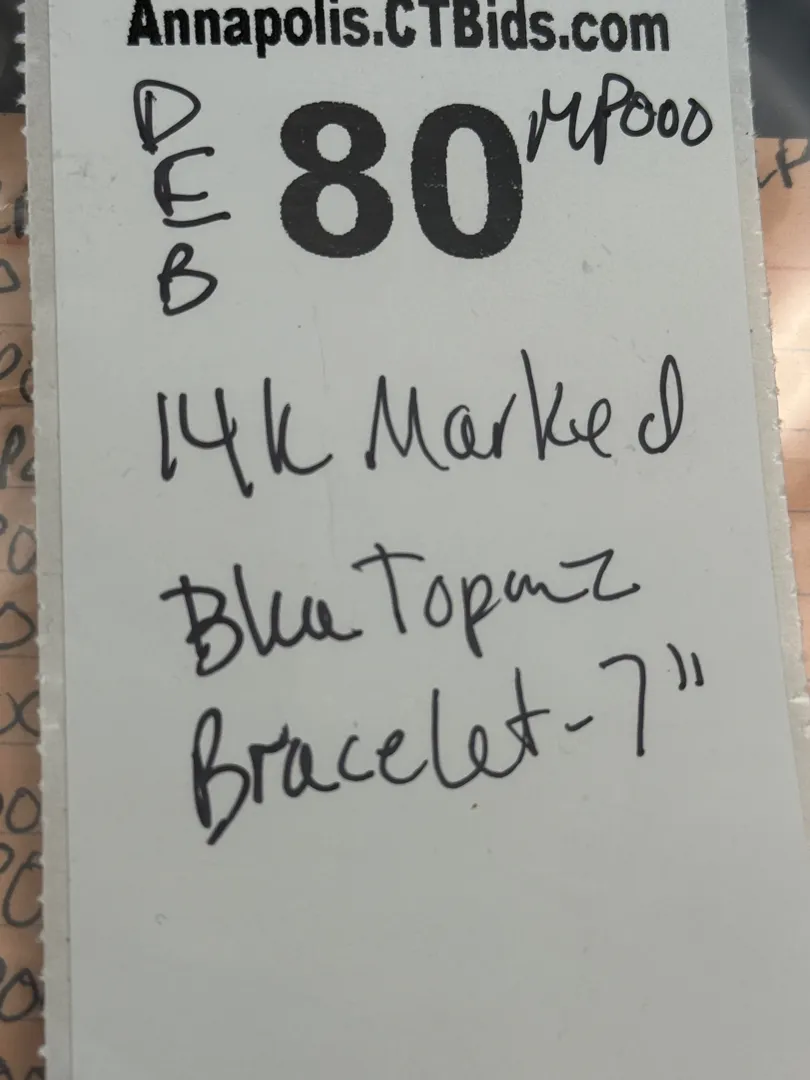 Annapolis.CTBids.com
DEB
80 MP000
14k Marked
Blue Topaz
Bracelet-7"